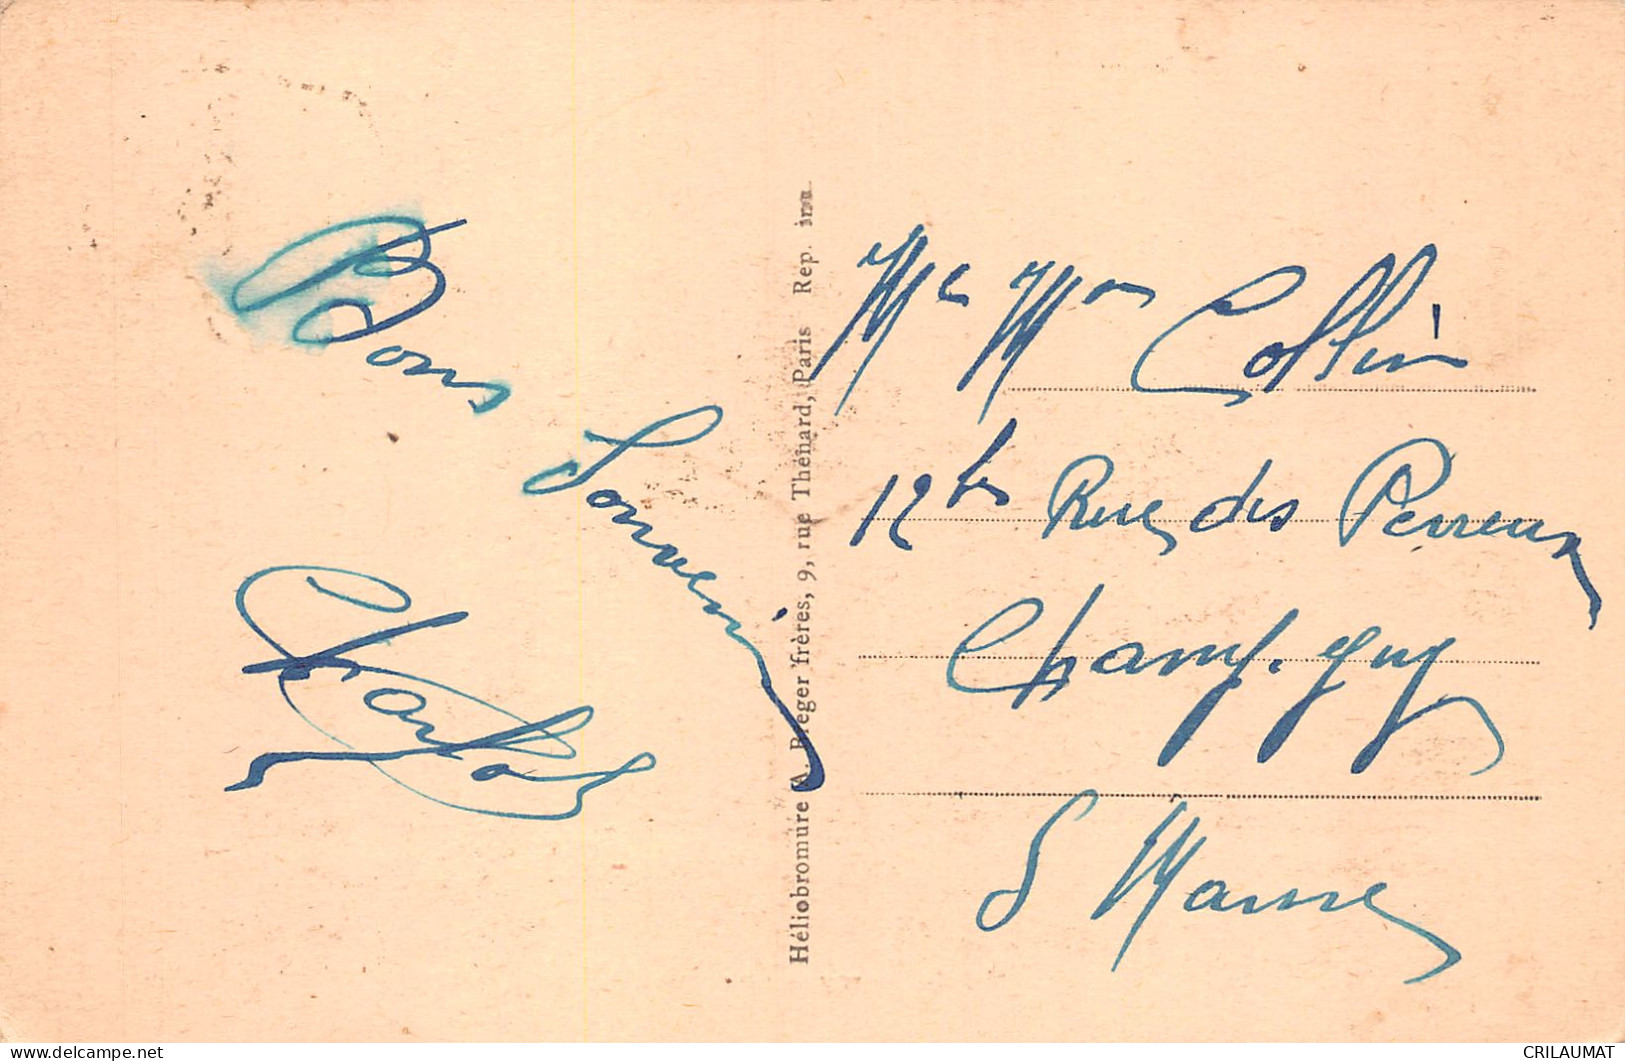 Bons
Souvenirs
Charles
Héliobromure A. Breger frères, 9, rue Thénard, Paris Rep. in
Mr Mme Collin
12 bis Rue des Perreux
Champigny
S Marne
delcampe.net
CRILAUMAT